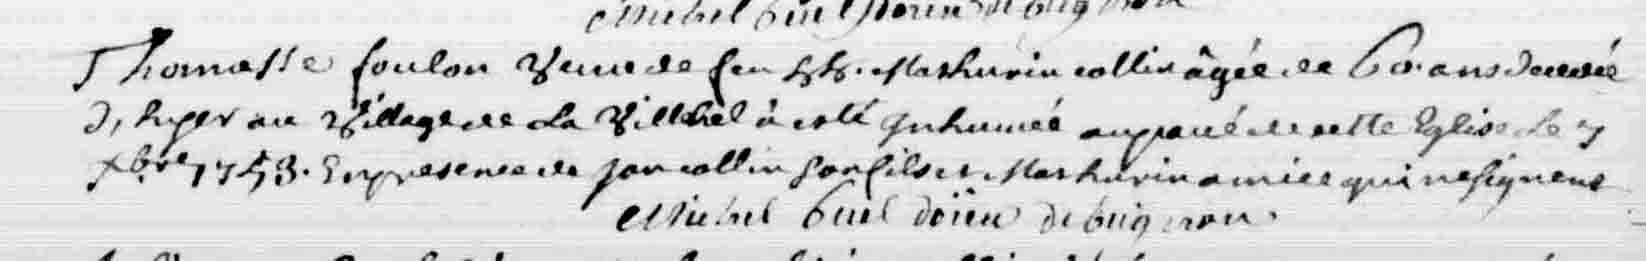 Michel Guil doïen de guignon
Thomasse foulon Veuve de feu h.h. Mathurin collin âgée de 60. ans decedée
d'hyer au Village de La Villehel à esté Inhumée au pavé de cette Eglise Le 7
Xbre 1753. En presence de jan collin son fils et Mathurin amice qui ne signent
Michel Guil doïen de guignon.